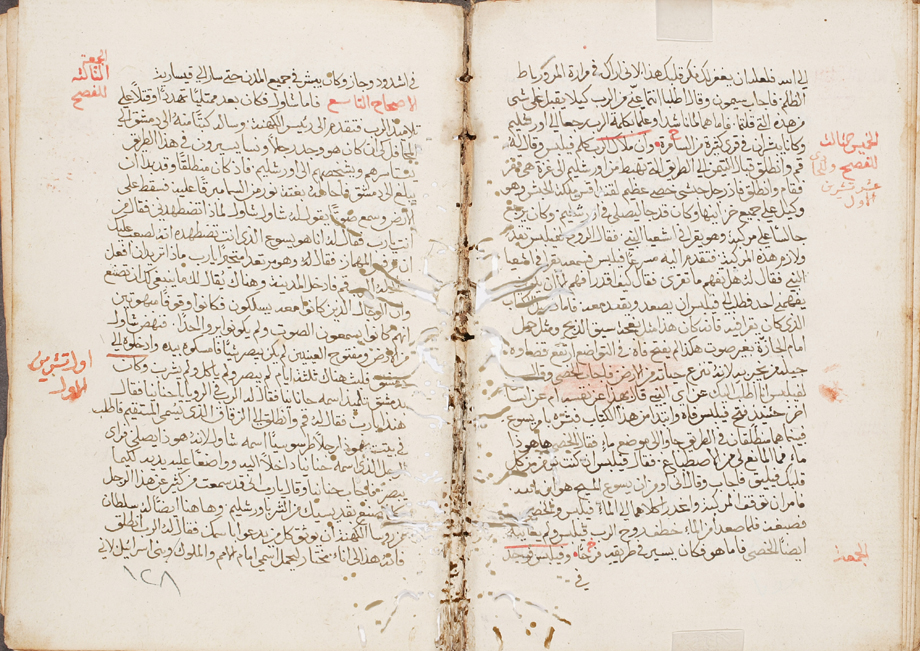 الى الله فلعله ان يغفر لك فكر قلبك هذا لانى اراك فى مرارة المر ورباط
الظلم فاجاب سيمون وقال اطلبا انتما عنى من الرب كيلا يقبل على شى
من هذه التى قلتما فاما هما لما ناشدا وعلما كلمة الرب رجعا الى اورشليم
وكانا يبشران فى قرى كثيرة من السامرة وان ملاك الرب كلم فيلبس وقال له
قم وانطلق قبالة التيمن الى الطريق التى تهبط من اورشليم الى غزة هى قفر
فقام وانطلق فاذ رجل حبشى خصى عظيم
وكيل على جميع خزاينها وكان قد جا ليصلى فى اورشليم وكان يرجع
جالسا على مركبته وهو يقرا فى اشعيا النبى فقال الروح لفيلبس تقدم
ولازم هذه المركبة فتقدم اليه مسرعا فيلبس فسمعه يقرا فى اشعيا
النبى فقال له هل تفهم ما تقرى فقال كيف اقدر افهم
يفهمنى احد فطلب الى فيلبس ان يصعد ويقعد معه فاما
الذى كان يقرا فيه فانه كان هذا مثل نعجة سيق للذبح ومثل حمل
امام الجازر بغير صوت هكذا لم يفتح فاه فى التواضع ارتفع قضاوه
جيله من يخبر به لانه تنزع حياته من الارض فاجاب الخصى وقال
لفيلبس انا اطلب اليك عن اى النبى قال هذا عن نفسه ام عن انسان
اخر حينئذ فتح فيلبس فاه وابتدا من هذا الكتاب فبشره بامر يسوع
فبينما هما منطلقان فى الطريق جاوا الى موضع ما فقال الخصى هاهوذا
ماء فما المانع لى من الاصطباغ فقال فيلبس ان كنت تومن من كل
قلبك فيليق فاجاب وقال انى اومن ان يسوع المسيح هو ابن الله
فامر ان توقف المركبة وانحدر كلاهما الى الماء فيلبس والخصى
فصبغه فلما صعدا من الماء خطف روح الرب فيلبس ولم يعاينه
ايضا الخصى فاما هو فكان يسير فى طريقه فرحا وفيلبس فوجد
فى
الخميس الثالث
للفصح
عشر تشرين
الاول
الجمعة
الجمعة
الثالثة
للفصح
فى اشدود وجاز وكان يبشر فى جميع المدن حتى سار الى قيسارية
الاصحاح التاسع فاما شاول فكان بعد ممتليا تهددا وقتلا على
تلاميذ الرب فتقدم الى رئيس الكهنة وساله كتبا منه الى دمشق الى
المحافل كى ان كان هو وجد رجلا ونسا يسيرون فى هذا الطريق
ويشخصهم الى اورشليم فاذ كان منطلقا وقد بدا ان
يبلغ الى دمشق فلجاه بغتة نور من السما مبرقا عليه فسقط على
الارض وسمع صوتا يقول له شاول شاول لماذا تضطهدنى فقال من
انت يارب فقال له انا هو يسوع الذى انت تضطهده انه لصعب عليك
ان ترفس المهماز فقال له وهو مرتعد متحير يارب ماذا تريدنى افعل
قم فادخل المدينة وهناك يقال لك ما ينبغى لك ان تصنع
وان الرجال الذين كانوا معه يسلكون فكانوا وقوفا مبهوتين
انهم كانوا يسمعون الصوت ولم يكونوا يرو احدا فنهض شاول
من الارض ومفتوح العينين لم يكن يبصر شيا فامسكوه بيده وادخلوه الى
دمشق فلبث هناك ثلثة ايام لم يبصر ولم ياكل ولم يشرب وكان
بدمشق تلميذ اسمه حنانيا فقال له الرب فى الرويا يا حنانيا فقال
هنذا يارب فقال له قم وانطلق الى الزقاق الذى يسمى المستقيم فاطلب
فى بيت يهوذا رجلا طرسوسيا اسمه شاول لانه هوذا يصلى فراى
رجل الذى اسمه حنانيا داخلا اليه وواضعا عليه يديه لكيما
يبصر فاجاب حنانيا وقال يارب انى قد سمعت من كثير عن هذا الرجل
كم صنع بقديسيك من الشر فى اورشليم وهاهنا ايضا له سلطان
من روسا الكهنة ان يوثق كل من يدعوا باسمك فقال له الرب انطلق
فانه هذا لى انا مختار ليحمل اسمى امام الامم والملوك وبنى اسرائيل لانى
اول تشرين
الاول
١٢٨